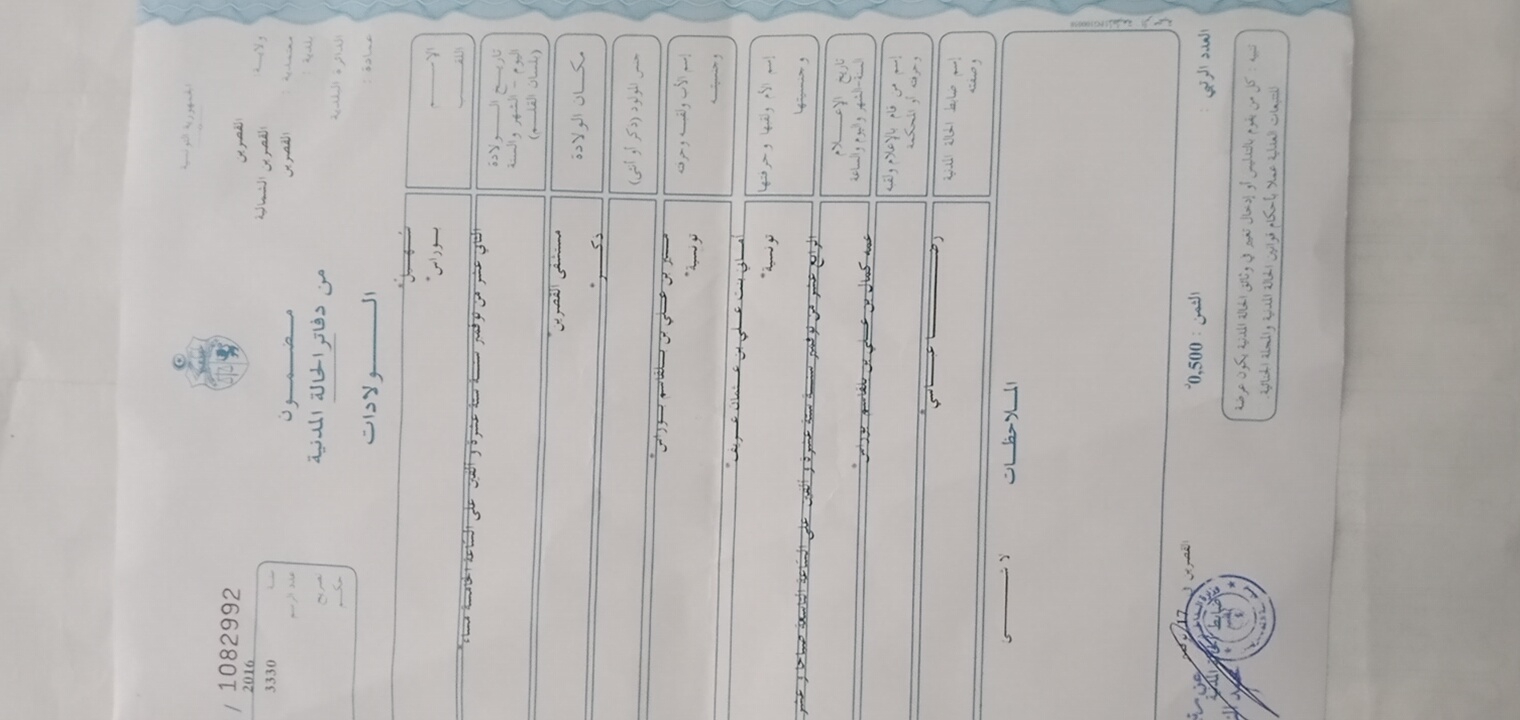 الجمهورية التونسية
ولاية : القصرين
معتمدية : القصرين الشمالية
بلدية : القصرين
الدائرة البلدية
عمادة :
مضمون
من دفاتر الحالة المدنية
الولادات
/ 1082992
سنة 2016
عدد الرسم 3330
تصريح
حكم
الاسم
اللقب بوراس*
تاريخ الولادة
اليوم - الشهر والسنة
(بلسان القلم)
الثاني عشر من نوفمبر سنة ستة عشرة و ألفين على الساعة الخامسة مساء*
مكان الولادة
مستشفى القصرين*
جنس المولود (ذكر أو أنثى)
ذكر*
إسم الأب ولقبه وحرفته
وجنسيته
بن علي بن بلقاسم بوراس*
تونسية*
إسم الأم ولقبها وحرفتها
وجنسيتها
أماني بنت علي بن عثمان عريف*
تونسية*
تاريخ الإعلام
السنة-الشهر واليوم والساعة
الرابع عشر من نوفمبر سنة ستة عشرة و ألفين على الساعة التاسعة صباحا و عشر
إسم من قام بالإعلام ولقبه
وحرفته أو المحكمة
عمه كمال بن علي بن بلقاسم بوراس*
إسم ضابط الحالة المدنية
وصفته
رضا عباسي*
الملاحظات
لا شيء
العدد الرتبي :
الثمن : 0,500د
القصرين في 17
تنبيه : كل من يقوم بالتدليس أو إدخال تغيير في وثائق الحالة المدنية يكون عرضة
للتتبعات العدلية عملا بأحكام قوانين الحالة المدنية والمجلة الجنائية.